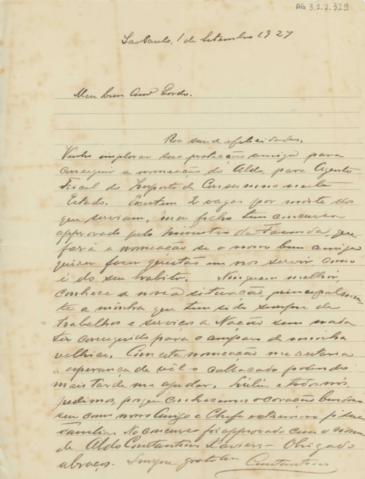 AG 3.2.2.329
São Paulo, 1 de Setembro 1927
Meu bom Amº Gordo.
Saude e felicidades.
Venho implorar sua proteção amiga para
conseguir a nomeação do Aldo, para Agente
Fiscal do Imposto de Consumo neste
Estado. Existem 2 vagas por morte dos
que serviam, meu filho tem concurso
approvado pelo Ministro da Fazenda, que
fará a nomeação se o nosso bom amigo
quizer fazer questão em nos servir como
é do seu habito. Ninguem melhor
conhece a nossa situação principalmen
te a minha que tem sido sempre de
trabalhos e serviços a Nação sem nada
ter conseguido para o amparo de minha
velhice. Com esta nomeação me restaria
a esperança de vel-o collocado podendo
mais tarde me ajudar.
pedimos, porque conhecemos o coração bondoso
seu como nosso Amigo e Chefe
familia. No concurso foi approvado com o nome
de Aldo Constantino Obrigado
abraços. Sempre grato
Constantino